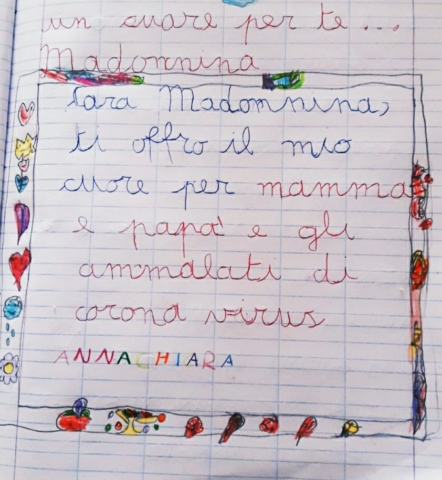 un cuore per te...
Madonnina
Cara Madonnina,
ti offro il mio
cuore per mamma
e papà e gli
ammalati di
corona virus
ANNACHIARA